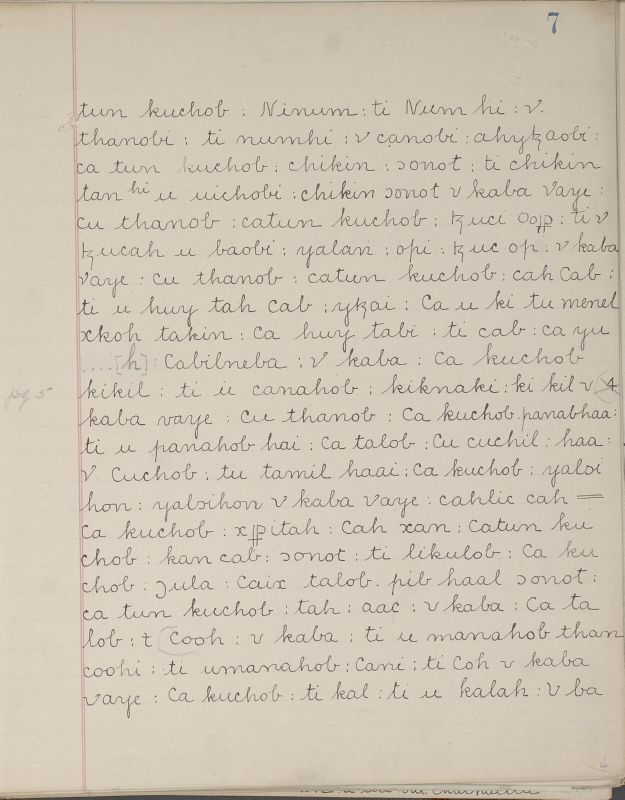 7
tun kuchob : Ninum : ti Num hi : v.
thanobi : ti numhi : v canobi : ahyꜩaobi :
ca tun kuchob : chikin : ɔonot : ti chikin
tan hi u uichobi : chikin ɔonot v kaba vaye :
cu thanob : catun kuchob : ꜩuci : ti v
ꜩucah u baobi : yalan : opi : ꜩuc op : v kaba
vaye : cu thanob : catun kuchob : cah Cab :
ti u huy tah cab : yꜩai : Ca u ki tu menel
xkoh takin : Ca huy tabi : ti cab : ca yu
....[h] : Cabilneba : v kaba : Ca kuchob
pg. 5 kikil : ti u canahob : kiknaki : ki kil v (4
kaba vaye : Cu thanob : Ca kuchob . panabhaa :
ti u panahob hai : Ca talob : Cu cuchil : haa :
v Cuchob : tu tamil haai : Ca kuchob : yalɔi
hon : yalɔihon v kaba vaye : cahlic cah =
Ca kuchob : xp̱itah : Cah xan : Catun ku
chob : kan cab : ɔonot : ti likulob : Ca ku
chob : ɔula : Caix talob . pib haal ɔonot :
ca tun kuchob : tah : aac : v kaba : Ca ta
lob : t (Cooh : v kaba : ti u manahob than
coohi : ti umanahob : Cani : ti Coh v kaba
vaye : Ca kuchob : ti kal : ti u kalah : v ba
4